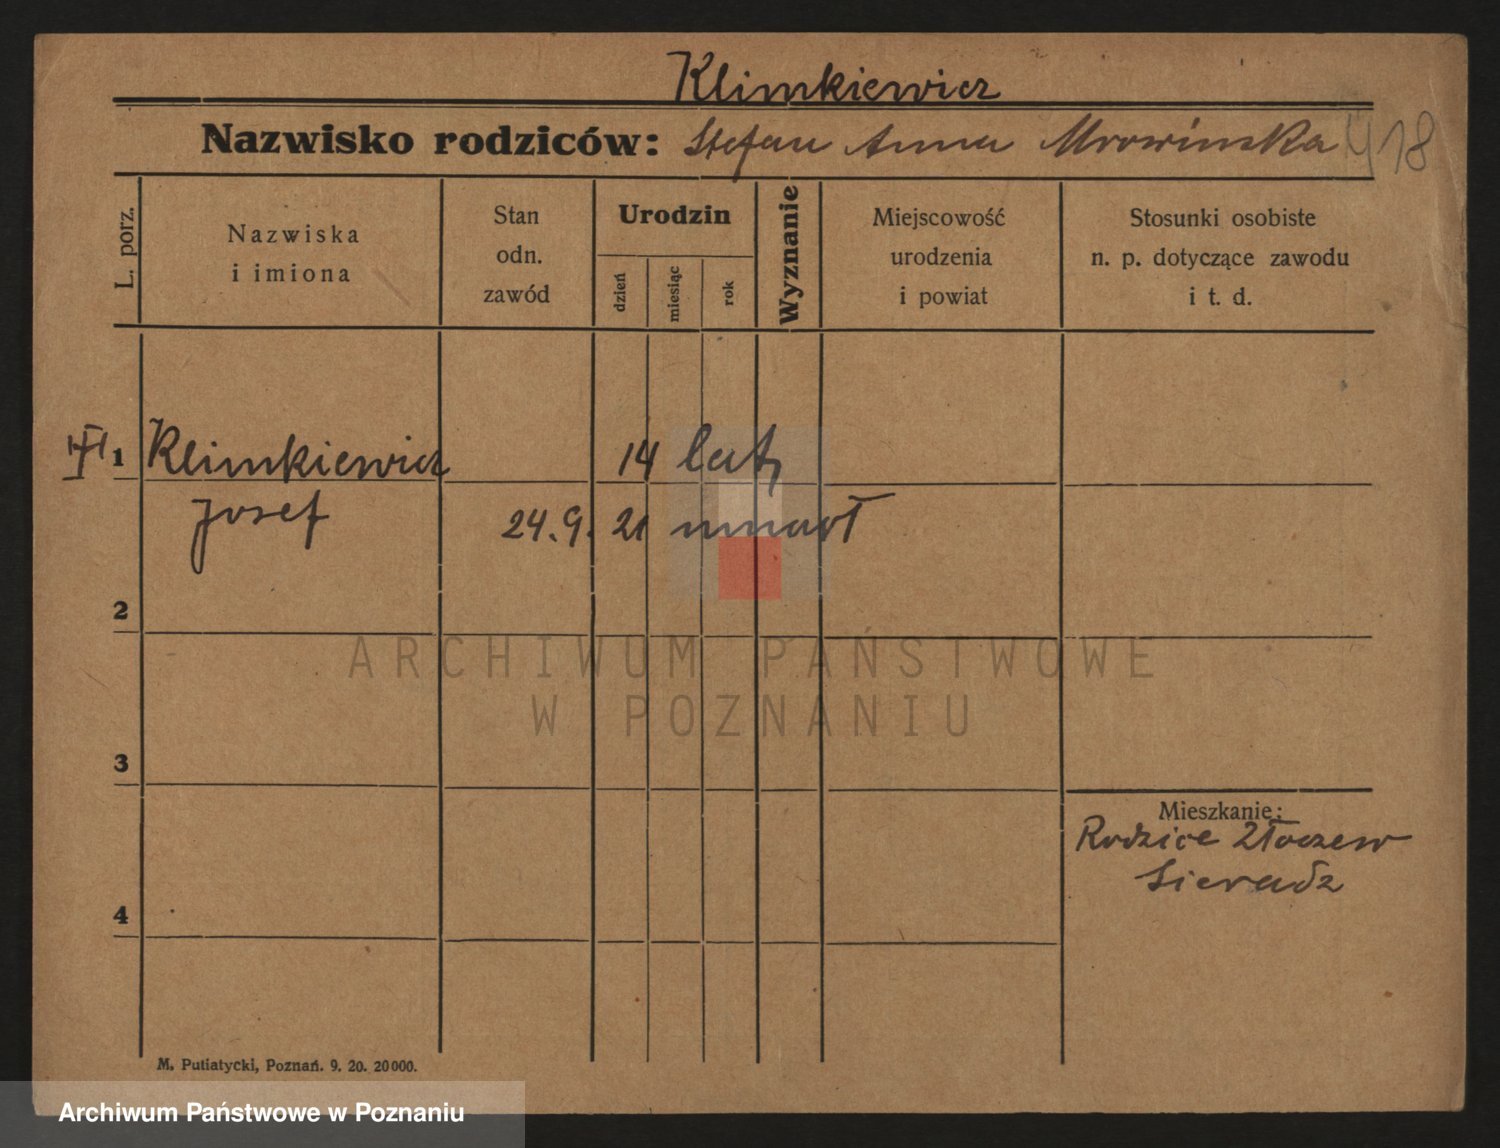 Klimkiewicz
Nazwisko rodziców: Stefan Anna Mrowinska 418
L. porz.
Nazwiska
i imiona
Stan
odn.
zawód
Urodzin
dzień
miesiąc
rok
Wyznanie
Miejscowość
urodzenia
i powiat
Stosunki osobiste
n. p. dotyczące zawodu
i t. d.
1 Klimkiewicz 14 lat
Josef 24.9. 21 umarł
2
ARCHIWUM PAŃSTWOWE
W POZNANIU
3
Mieszkanie:
Rodzice Złoczew
Sieradz
4
M. Putiatycki, Poznań. 9. 20. 20000.
Archiwum Państwowe w Poznaniu